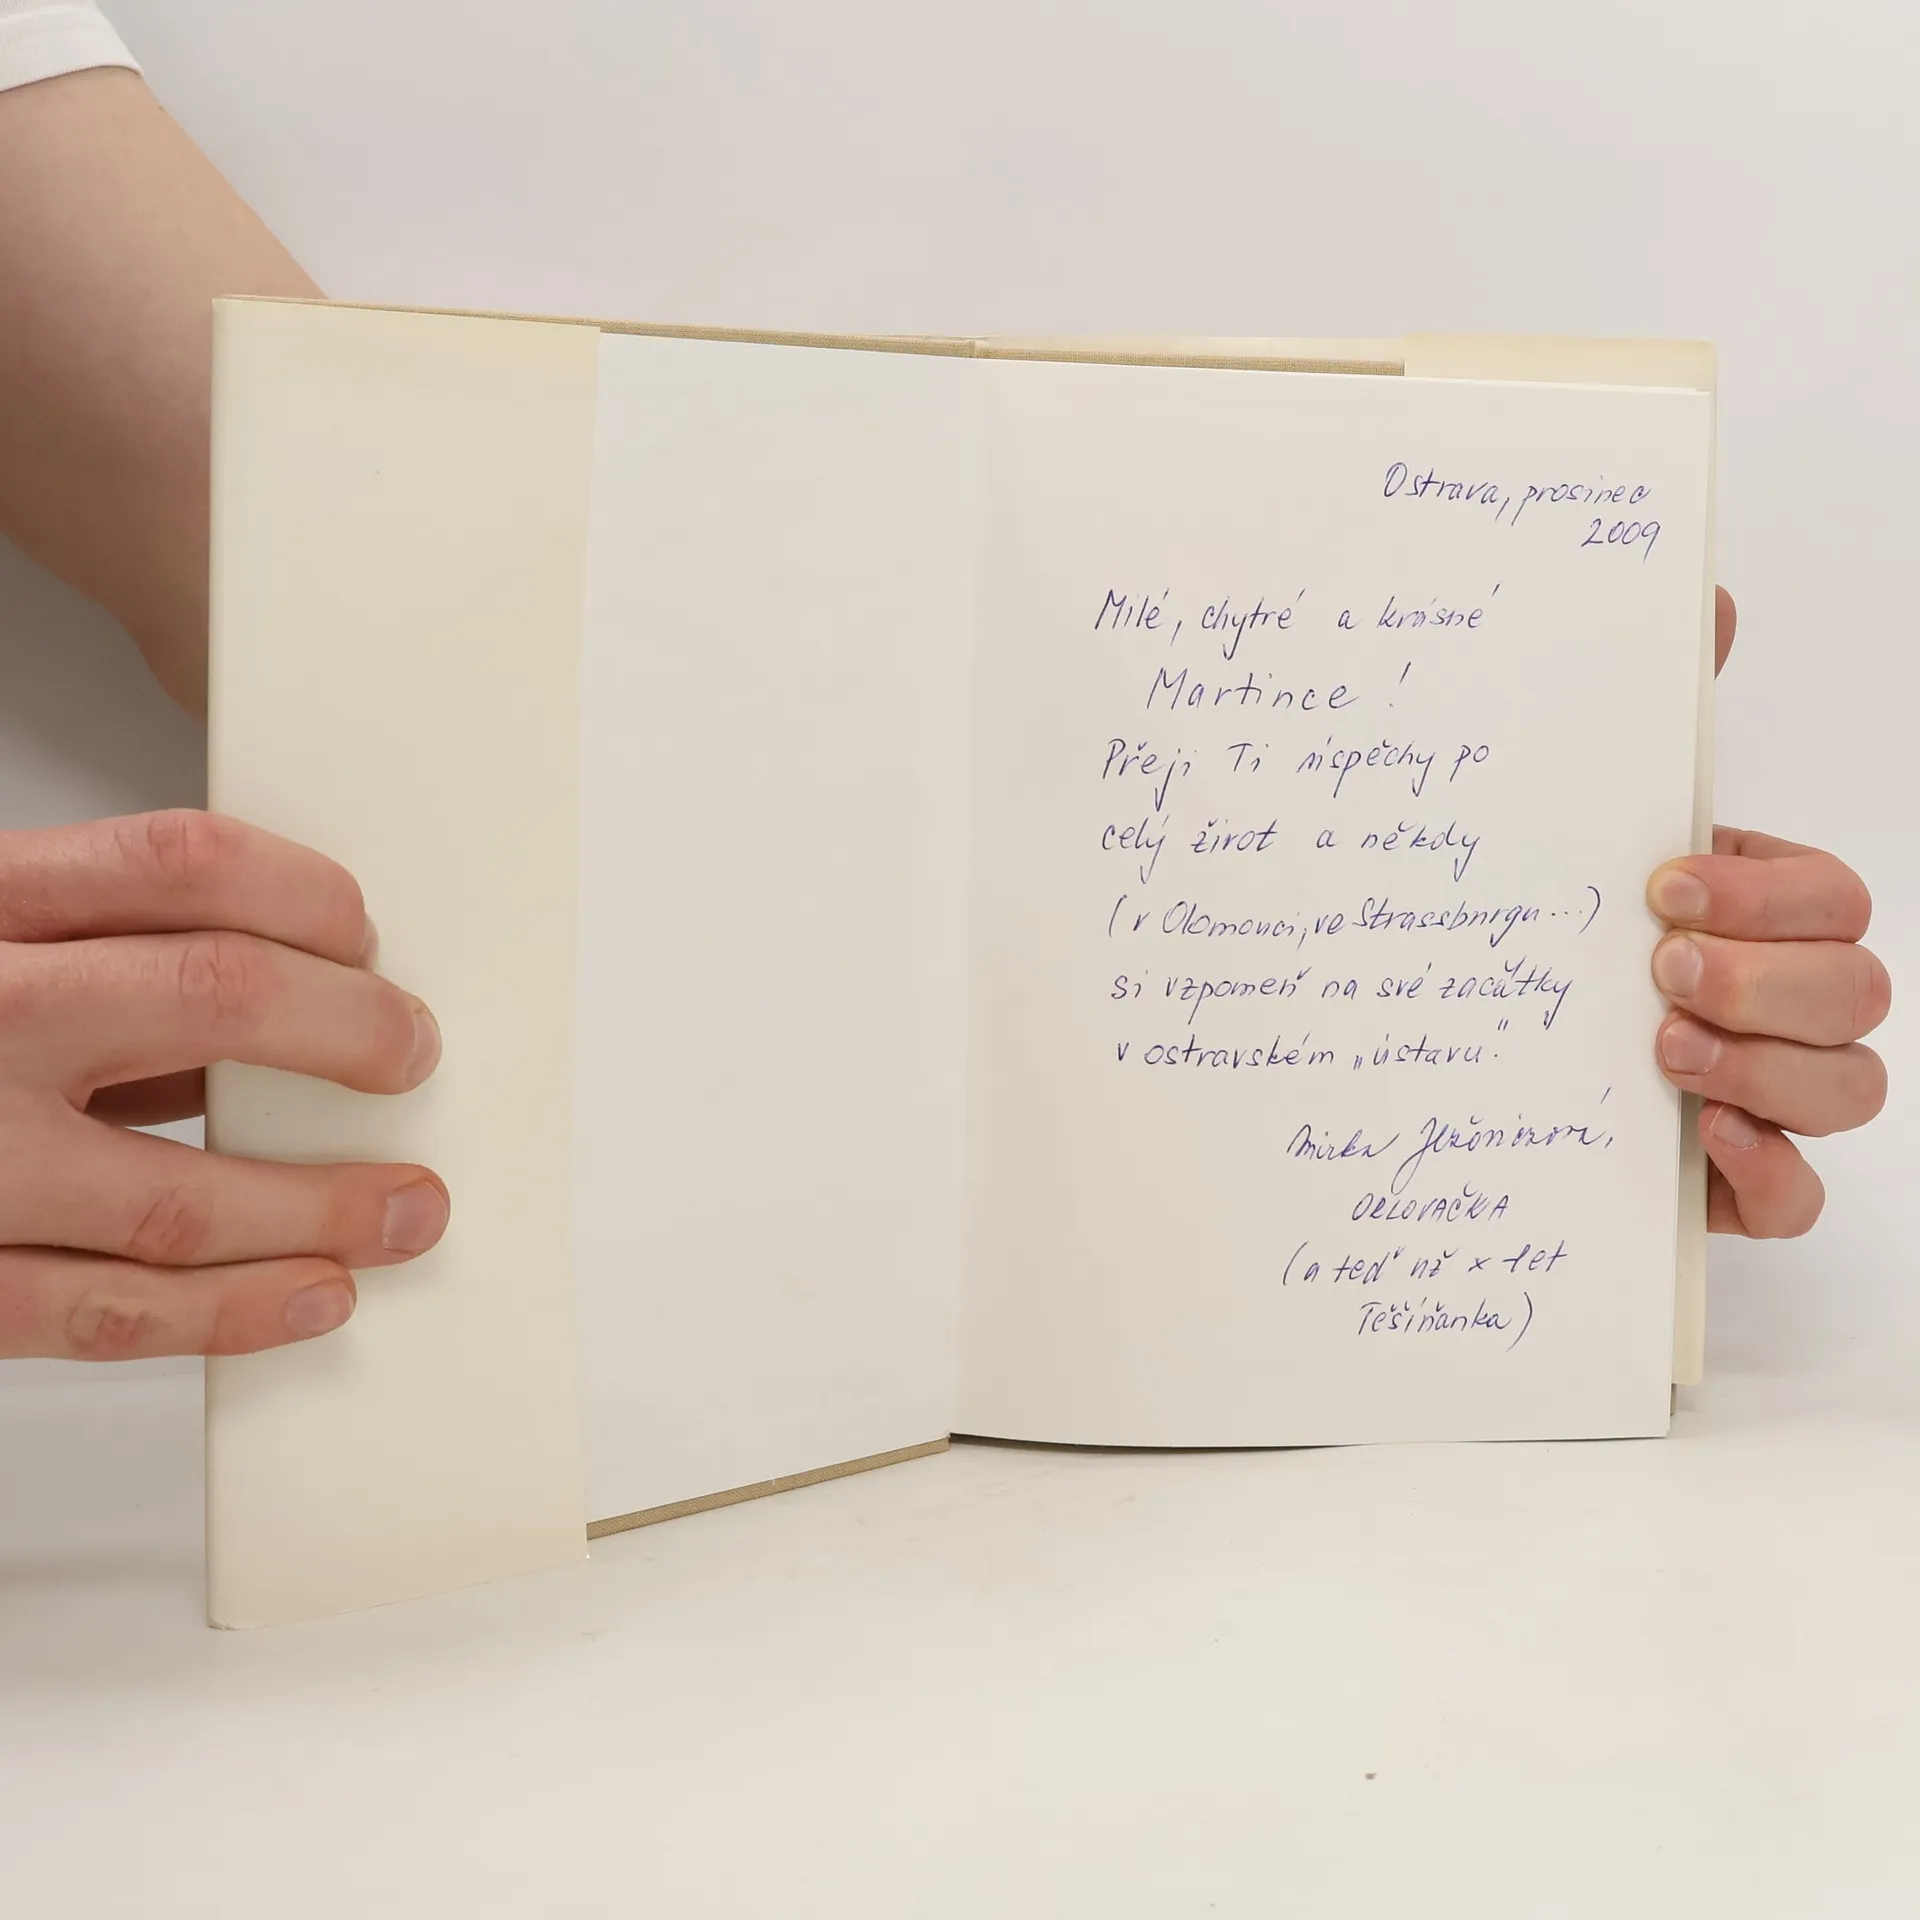 Ostrava, prosinec
2009
Milé, chytré a krásné
Martince!
Přeji Ti úspěchy po
celý život a někdy
(v Olomouci, ve Strassburgu...)
si vzpomeň na své začátky
v ostravském „ústavu".
Mirka
ORLOVAČKA
(a teď už x let
Těšíňanka)